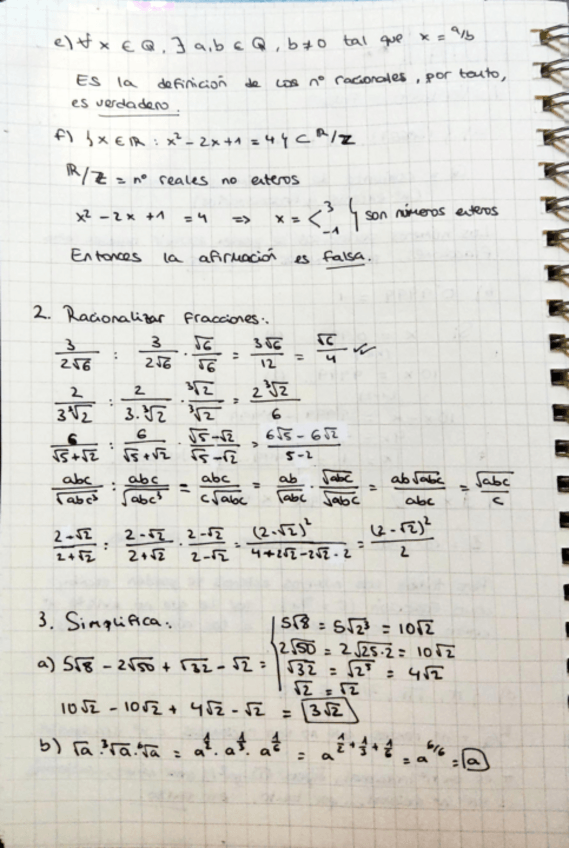 e) ∀ x ∈ Q, ∃ a,b ∈ Q, b≠0 tal que x = a/b
Es la definición de los nº racionales, por tanto,
es verdadero.
f) {x ∈ ℝ : x² - 2x + 1 = 4} ⊂ ℝ/ℤ
ℝ/ℤ = nº reales no enteros
x² - 2x + 1 = 4 => x = < 3 -1 } son números enteros
Entonces la afirmación es falsa.
2. Racionalizar fracciones:.
3/(2√6) : 3/(2√6) · √6/√6 = 3√6/12 = √6/4 ✓
2/(3∛2) : 2/(3·∛2) · ∛2/∛2 = 2∛2/6
6/(√5+√2) : 6/(√5+√2) · (√5-√2)/(√5-√2) = (6√5 - 6√2)/(5-2)
abc/√(abc³) : abc/√(abc³) = abc/(c√(abc)) = ab/√(abc) · √(abc)/√(abc) = ab√(abc)/(abc) = √(abc)/c
(2-√2)/(2+√2) : (2-√2)/(2+√2) · (2-√2)/(2-√2) = (2-√2)²/(4+2√2-2√2-2) = (2-√2)²/2
3. Simplifica:
a) 5√8 - 2√50 + √32 - √2 =
5√8 = 5√2³ = 10√2
2√50 = 2√25·2 = 10√2
√32 = √2⁵ = 4√2
√2 = √2
10√2 - 10√2 + 4√2 - √2 = 3√2
b) √a · ∛a · ⁶√a = a^(1/2) · a^(1/3) · a^(1/6) = a^(1/2 + 1/3 + 1/6) = a^(6/6) = a